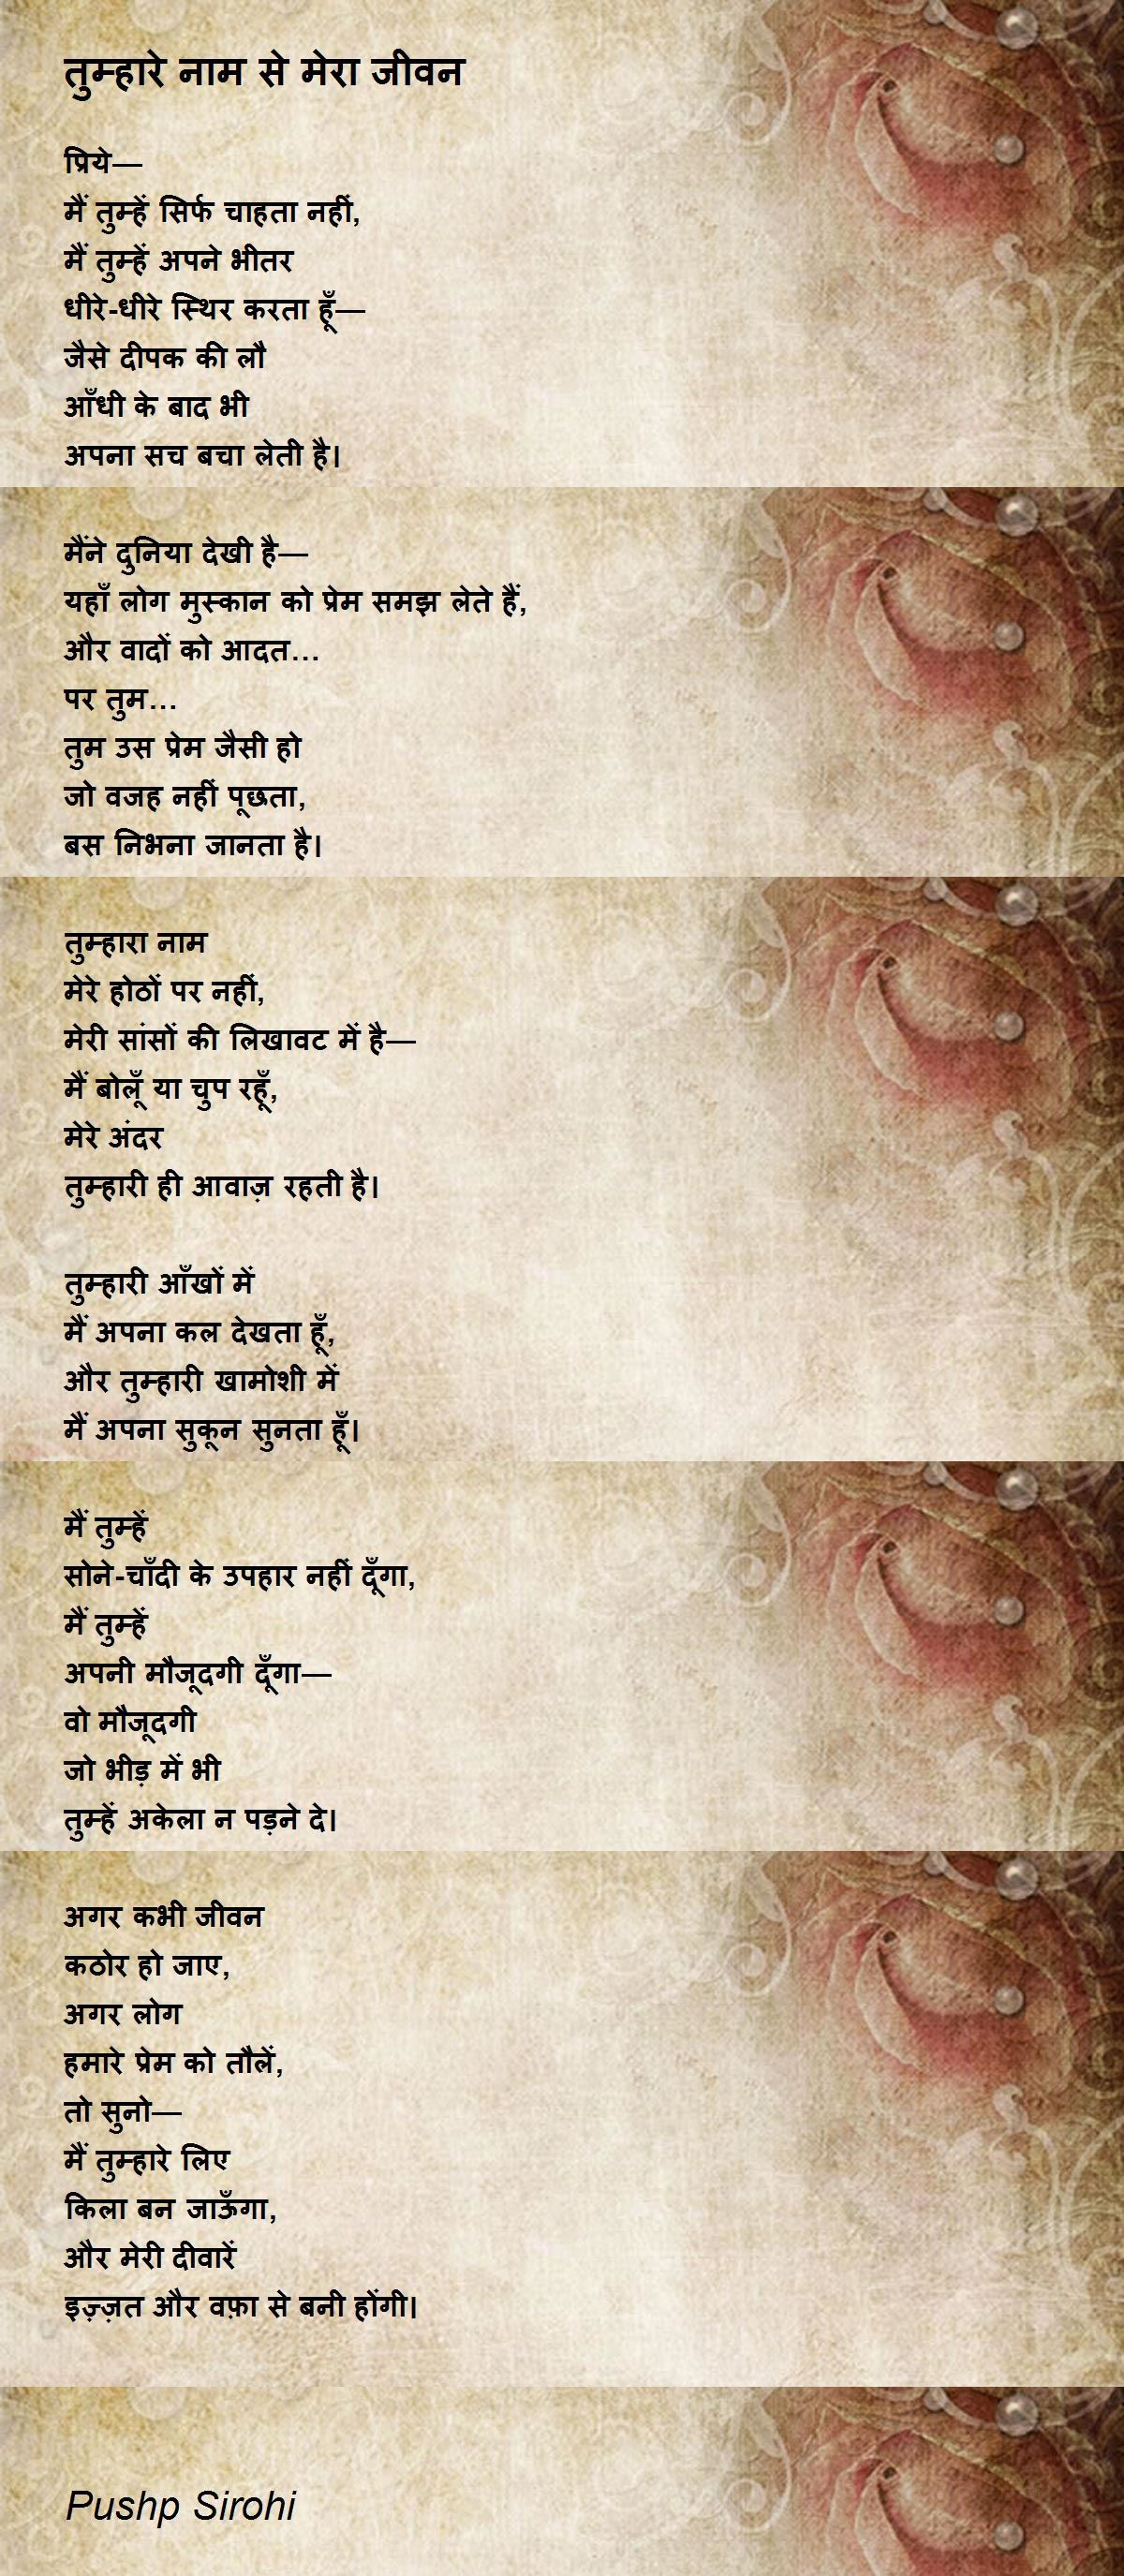 तुम्हारे नाम से मेरा जीवन
प्रिये—
मैं तुम्हें सिर्फ चाहता नहीं,
मैं तुम्हें अपने भीतर
धीरे-धीरे स्थिर करता हूँ—
जैसे दीपक की लौ
आँधी के बाद भी
अपना सच बचा लेती है।
मैंने दुनिया देखी है—
यहाँ लोग मुस्कान को प्रेम समझ लेते हैं,
और वादों को आदत...
पर तुम...
तुम उस प्रेम जैसी हो
जो वजह नहीं पूछता,
बस निभना जानता है।
तुम्हारा नाम
मेरे होठों पर नहीं,
मेरी सांसों की लिखावट में है—
मैं बोलूँ या चुप रहूँ,
मेरे अंदर
तुम्हारी ही आवाज़ रहती है।
तुम्हारी आँखों में
मैं अपना कल देखता हूँ,
और तुम्हारी खामोशी में
मैं अपना सुकून सुनता हूँ।
मैं तुम्हें
सोने-चाँदी के उपहार नहीं दूँगा,
मैं तुम्हें
अपनी मौजूदगी दूँगा—
वो मौजूदगी
जो भीड़ में भी
तुम्हें अकेला न पड़ने दे।
अगर कभी जीवन
कठोर हो जाए,
अगर लोग
हमारे प्रेम को तौलें,
तो सुनो—
मैं तुम्हारे लिए
किला बन जाऊँगा,
और मेरी दीवारें
इज़्ज़त और वफ़ा से बनी होंगी।
Pushp Sirohi